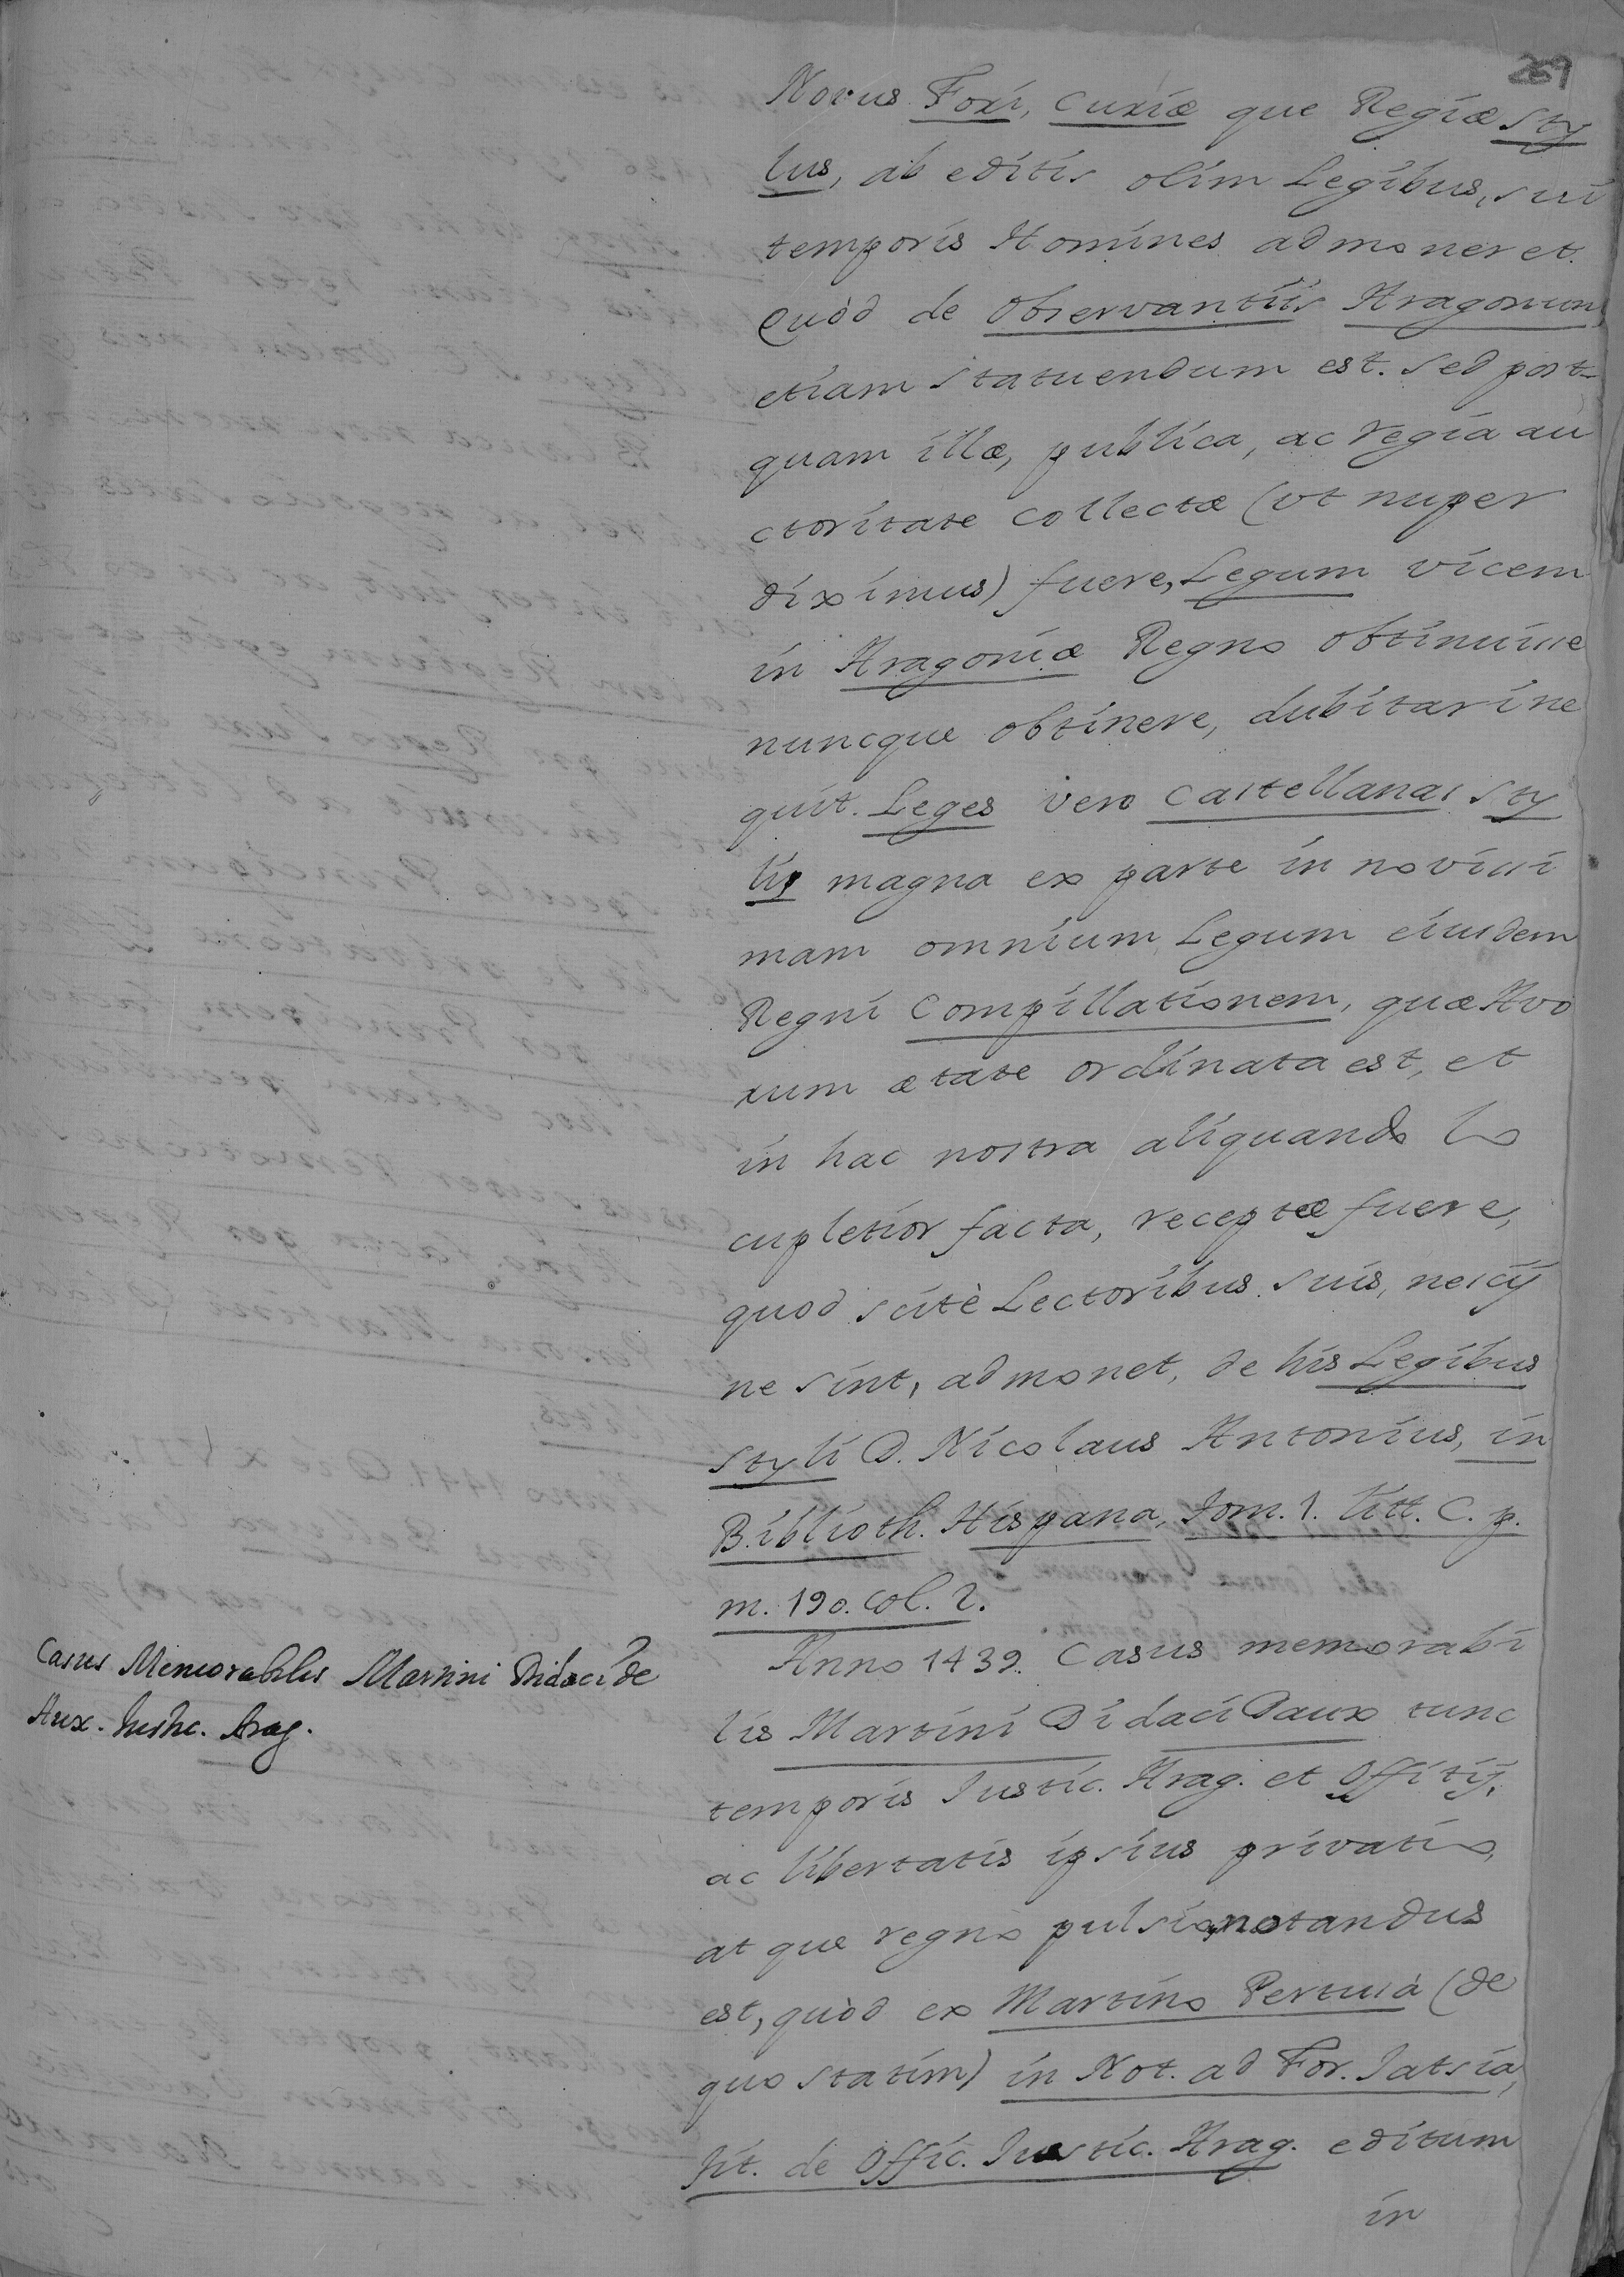 269
Novus Fori, Curiæ que Regiæ Sty
lus, ab editis olim Legibus, sui
temporis Homines admoneret.
Quòd de Observantiis Aragonum
etiam statuendum est. Sed post-
quam illæ, publica, ac regia au
ctoritate collectæ (vt nuper
diximus) fuere, Legum vicem
in Aragoniæ Regno obtinuisse
nuncque obtinere, dubitari ne
quit. Leges vero Castellanas Sty
lis magna ex parte in novissi
mam omnium Legum eiusdem
Regni Compillationem, quæ Avo
rum ætate ordinata est, et
in hac nostra aliquando lo
cupletior facta, receptæ fuere,
quod scitè Lectoribus suis, nescij
ne sint, admonet, de his Legibus
Styli D. Nicolaus Antonius, in
Biblioth. Hispana, Tom. 1. litt. C. p.
m. 190. col. 2.
Casus Memorabilis Martini Didaci de
Aux. Justic. Arag.
Anno 1439. Casus memorabi
lis Martini Didaci Daux tunc
temporis Justic. Arag. et Offitij,
ac libertatis ipsius privatio,
at que regno pulsio, notandus
est, quòd ex Martino Pertusà (de
quo statim) in Not. ad For. Jatsia,
tit. de Offic. Justic. Arag. editum
in